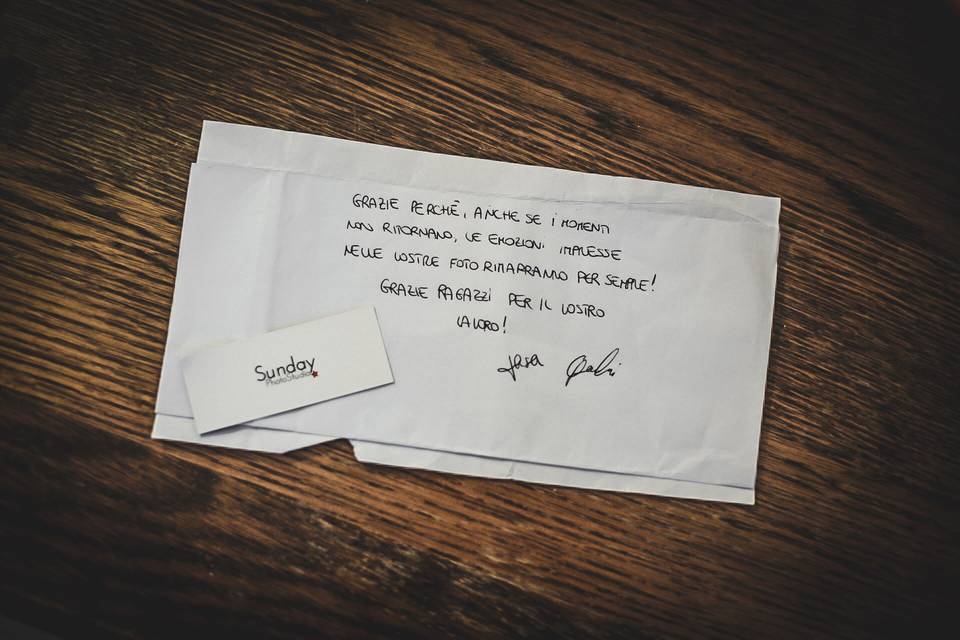 GRAZIE PERCHÉ, ANCHE SE I MOMENTI
NON RITORNANO, LE EMOZIONI IMPRESSE
NELLE VOSTRE FOTO RIMARRANNO PER SEMPRE!
GRAZIE RAGAZZI PER IL VOSTRO
LAVORO!
Sunday
PhotoStudio